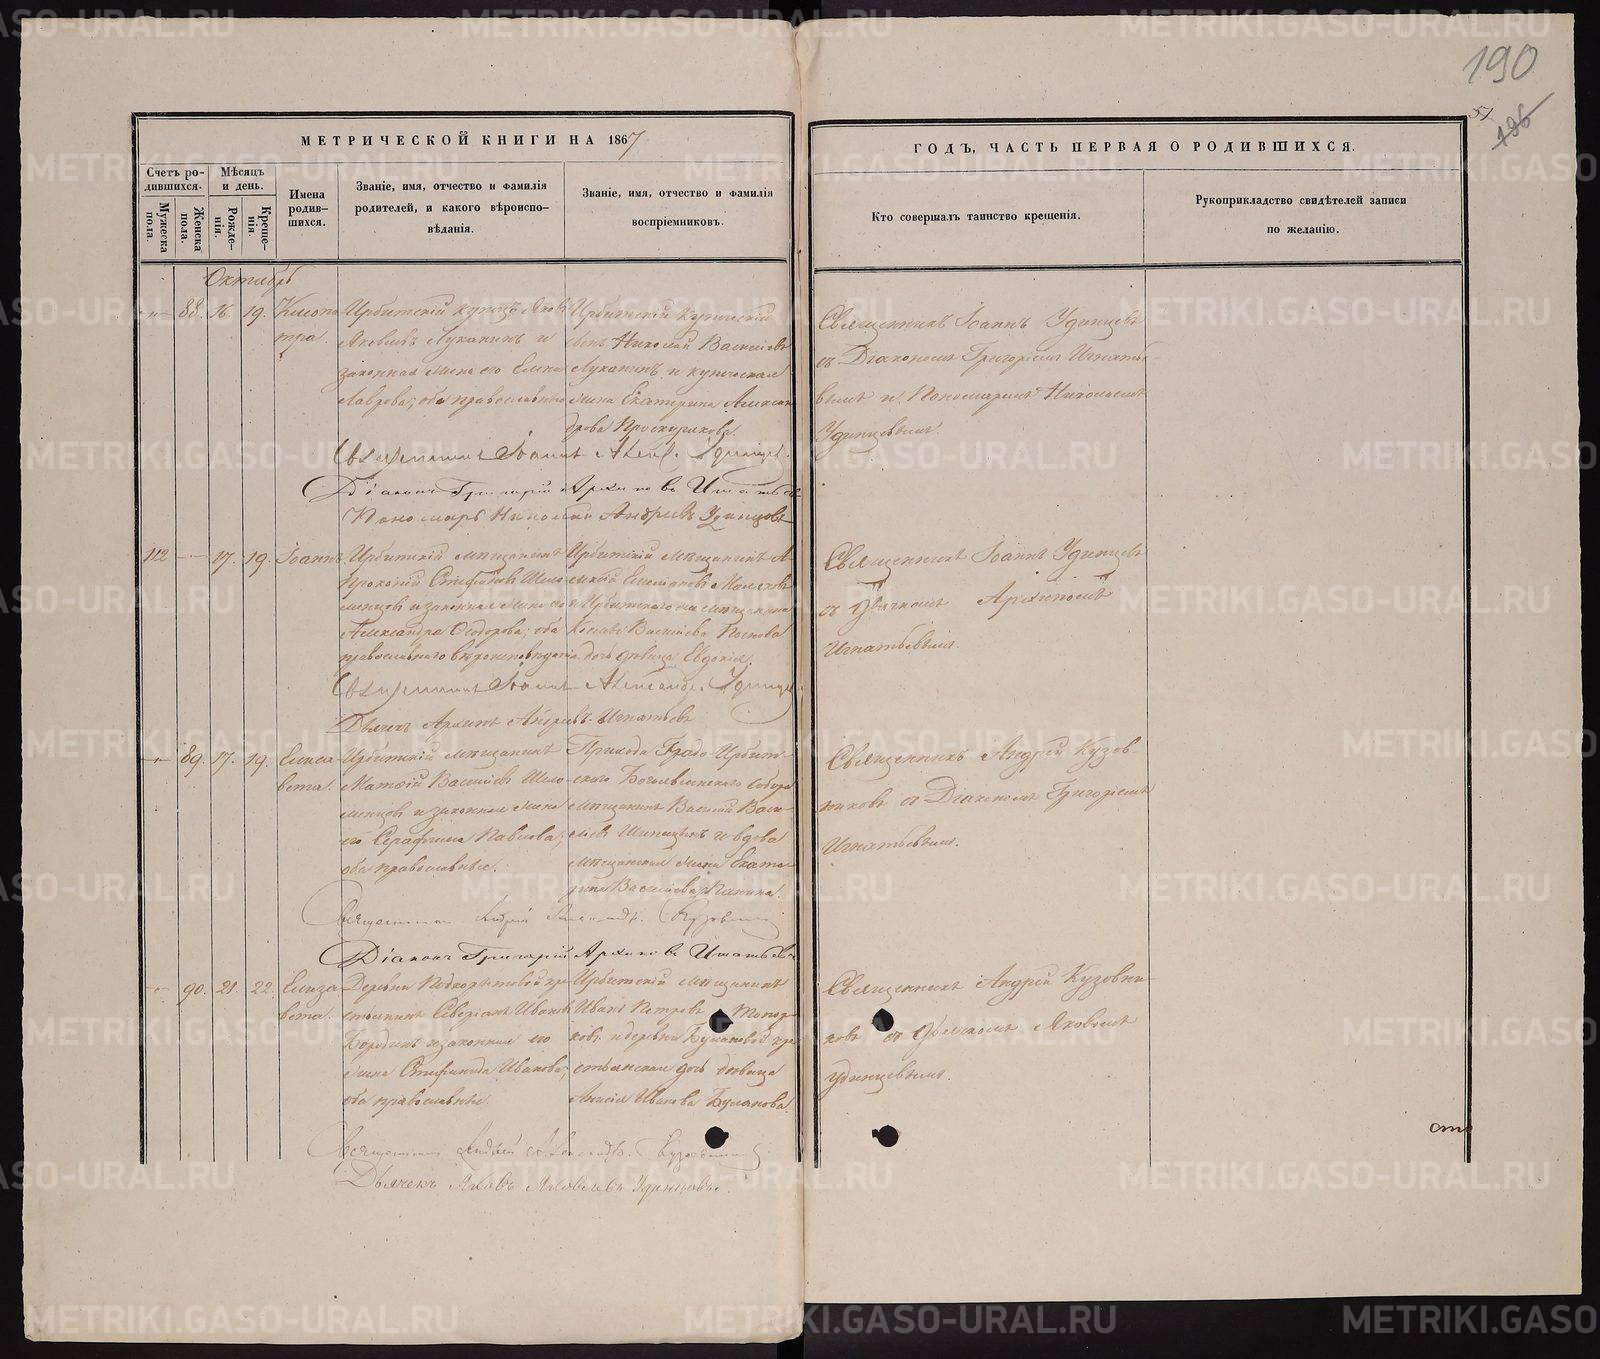 190
51
186
МЕТРИЧЕСКОЙ КНИГИ НА 1867
ГОДЪ, ЧАСТЬ ПЕРВАЯ О РОДИВШИХСЯ.
Счетъ ро-
дившихся.
Мужеска
пола.
Женска
пола.
Мѣсяцъ
и день.
Рожде-
нія.
Креще-
нія.
Имена
родив-
шихся.
Званіе, имя, отчество и фамилія
родителей, и какого вѣроиспо-
вѣданія.
Званіе, имя, отчество и фамилія
воспріемниковъ.
Кто совершалъ таинство крещенія.
Рукоприкладство свидѣтелей записи
по желанію.
Октябрь
88. 16 19. Клеопа
тра.
Ирбитскій купецъ Яковъ
Яковлевъ Луканинъ и
законная жена его Елена
Лаврова; оба православные
Ирбитскій Купеческій
сынъ Николай Васильевъ
Луканинъ и купеческая
жена Екатерина Алексан
дрова Проскурякова.
Священникъ Іоаннъ Удинцевъ
съ Діакономъ Григоріемъ Игнатье-
вымъ и Пономаремъ Николаемъ
Удинцевымъ.
Священникъ Іоаннъ Алекс. Удинцев.
Діаконъ Григорій Архиповъ Игнатьевъ
Пономарь Николай Андреевъ Удинцовъ
112 17. 19. Іоаннъ
Ирбитскій мѣщанинъ
Прокопій Стефановъ Шело
менцовъ и законная жена его
Александра Ѳеодорова; оба
православнаго вѣроисповѣданія
Ирбитскій мѣщанинъ
Васильева
дочь дѣвица Евдокія.
Священникъ Іоаннъ Удинцевъ
съ Дьячкомъ Архипомъ
Игнатьевымъ.
Священникъ Іоаннъ Александр. Удинцев.
Дьячекъ Архипъ Андреевъ Игнатьевъ
89. 17. 19. Елиса
вета.
Ирбитскій мѣщанинъ
Матѳій Васильевъ Шело
менцовъ и законная жена
его Серафима Павлова;
оба православные.
Прихода Градо Ирбит-
скаго Богоявленскаго Собора
мѣщанинъ Василій Васи-
льевъ Шипицынъ и вдова
мѣщанская жена Екате-
рина Васильева Панина.
Священникъ Андрей Кузов
никовъ съ Діакономъ Григоріемъ
Игнатьевымъ.
Священникъ Андрей Александр. Кузовник
Діаконъ Григорій Архиповъ Игнатьевъ
90. 21. 22. Елиза
вета.
Деревни Подкорытовой кре
стьянинъ Северіанъ Ивановъ
Бородинъ и законная его
жена Стефанида Иванова;
оба православные.
Ирбитскій мѣщанинъ
Иванъ Петровъ Топор
ковъ и деревни Булановой кре
стьянская дочь дѣвица
Анисія Иванова Буланова.
Священникъ Андрей Кузовни
ковъ съ Дьячкомъ Яковомъ
Удинцевымъ.
Священникъ Андрей Александр. Кузовник
Дьячекъ Яковъ Яковлевъ Удинцовъ.
METRIKI.GASO-URAL.RU